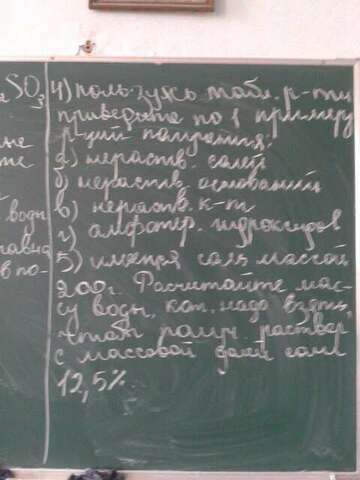 SO3
4) пользуясь табл. р-ти
приведите по 1 примеру
р-ций получения:
а) нераств. солей
б) нераств. оснований
в) нераств. к-т
г) амфотер. гидроксидов
воды
5) имеется соль массой
200г. Расчитайте мас-
в по-
су воды, кот. надо взять,
чтоб получ. раствор
с массовой долей соли
12,5%.